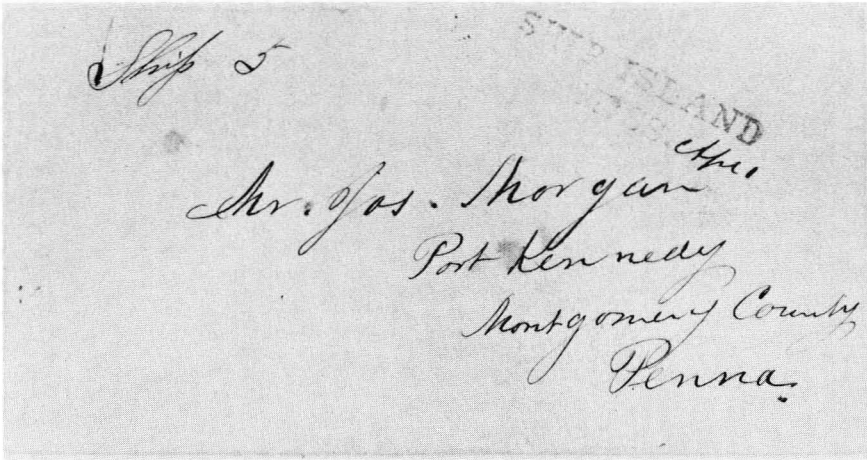 Ship 5
SHIP ISLAND
Mr. Jos. Morgan
Port Kennedy
Montgomery County
Penna.